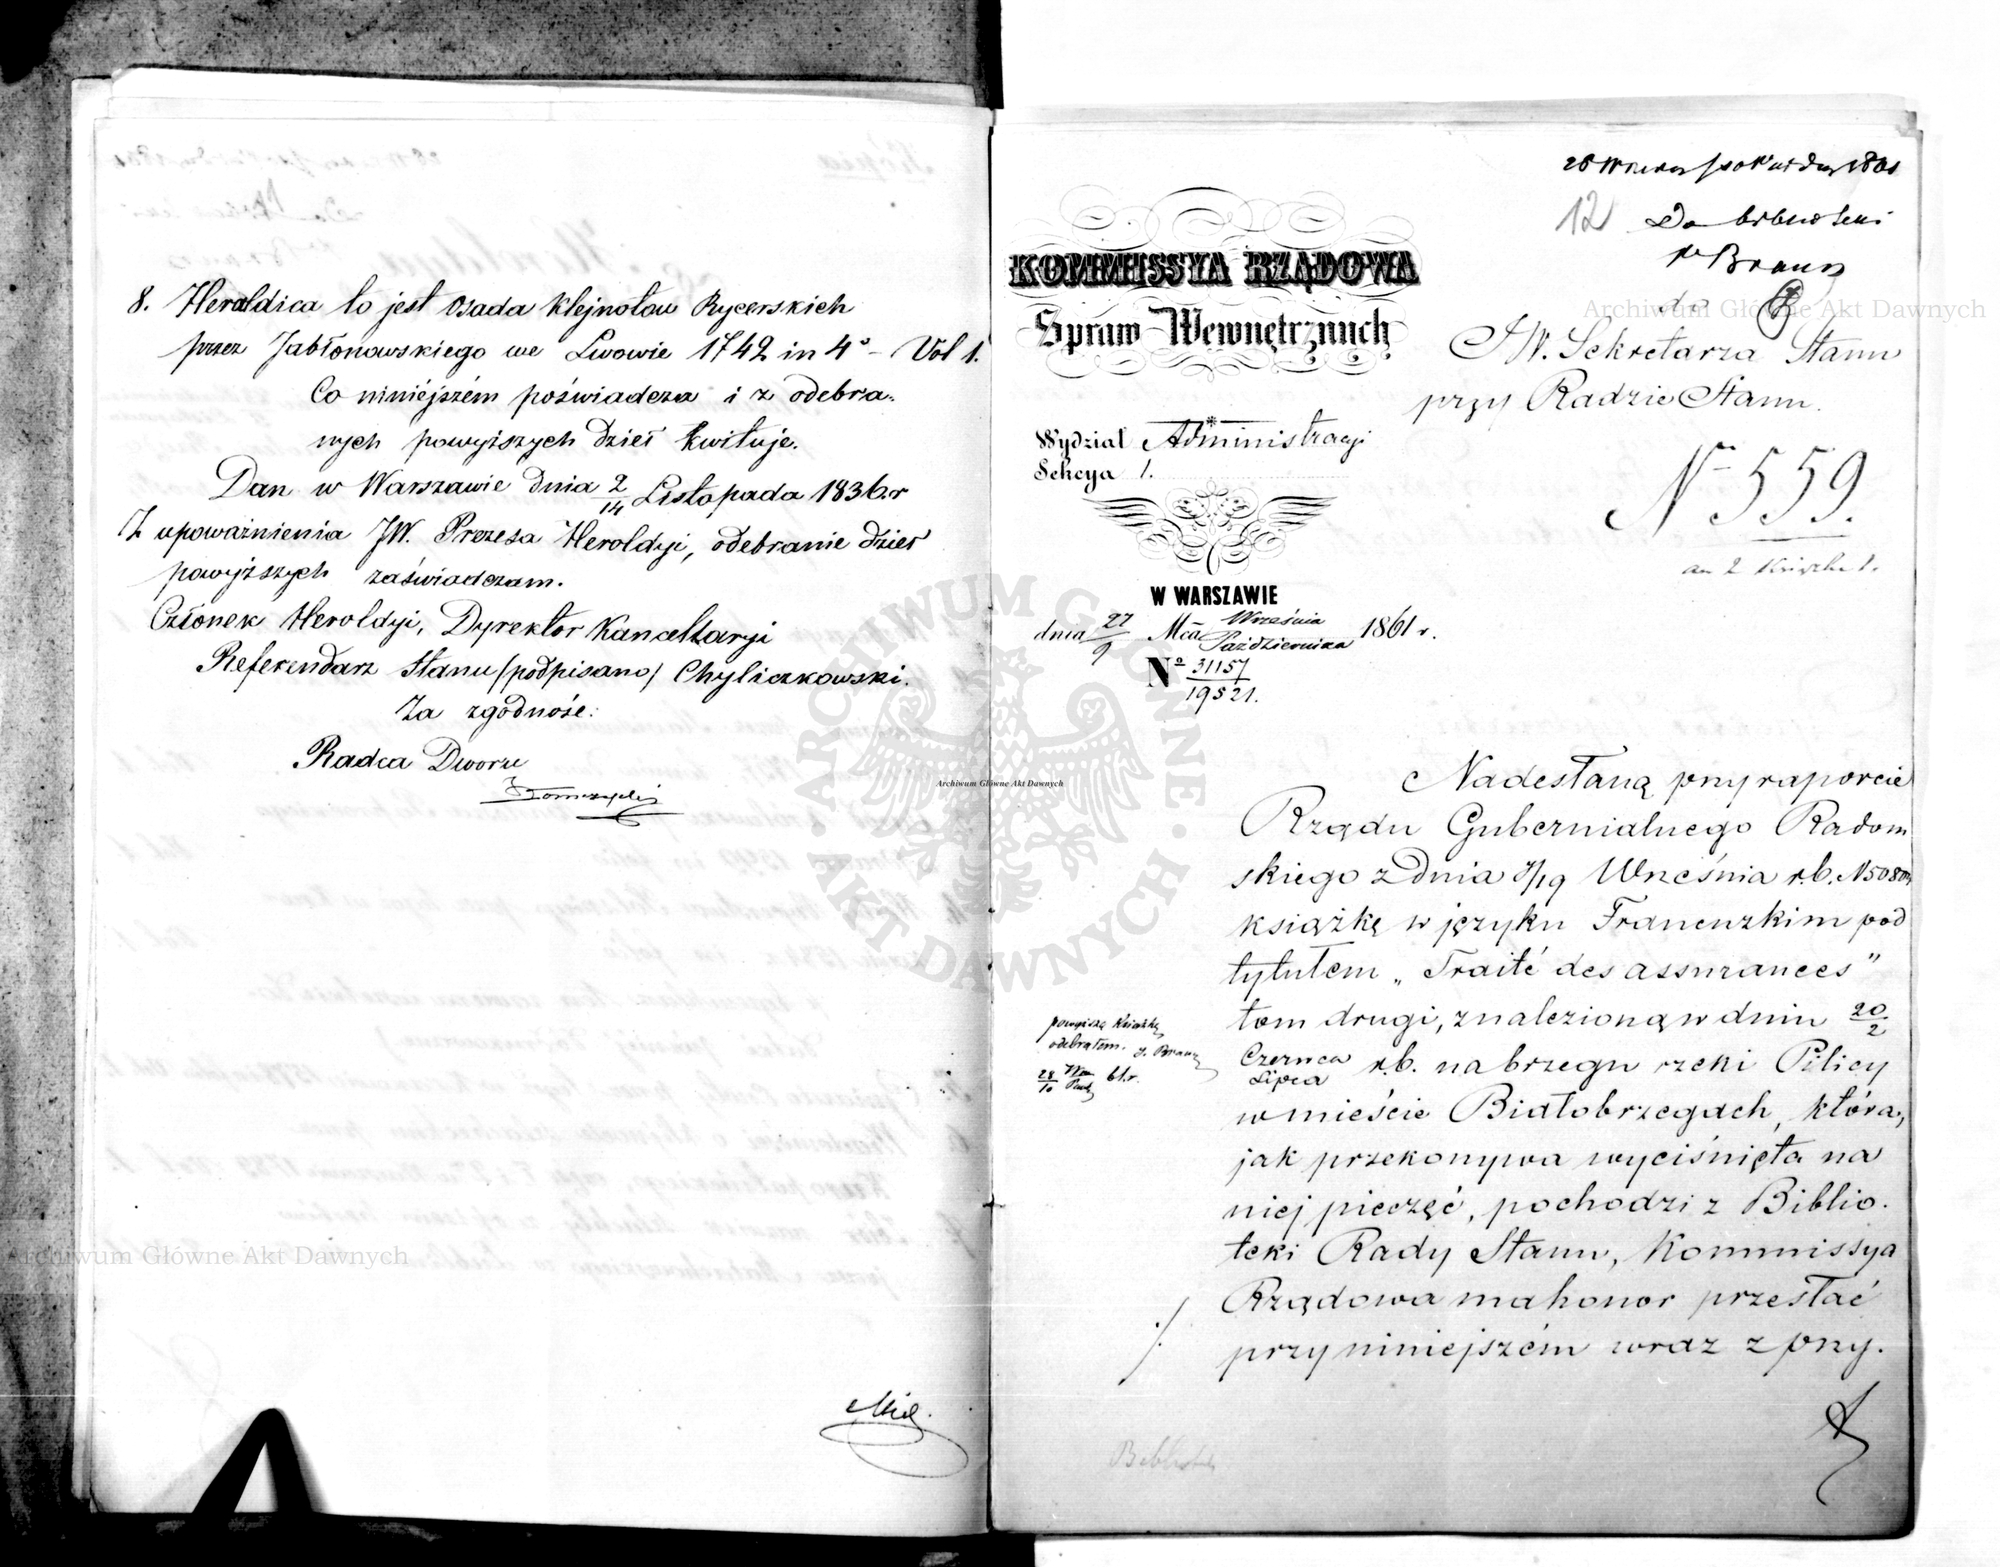 8. Heraldica to jest osada Klejnotow Rycerskich
przez Jabłonowskiego we Lwowie 1742 in 4º - Vol 1.
Co niniéjszém poświadcza i z odebra-
nych powyższych dzieł kwituje.
Dan w Warszawie dnia 2/14 Listopada 1836.r
Z upoważnienia JW. Prezesa Heroldyi, odebranie dzieł
powyższych zaświadczam.
Członek Heroldyi, Dyrektor Kancellaryi
Referendarz Stanu /podpisano/ Chyliczkowski.
Za zgodność:
Radca Dworu
12
Do biblioteki
P Braun
do
JW. Sekretarza Stanu
przy Radzie Stanu.
Nº 559.
KOMMISSYA RZĄDOWA
Spraw Wewnętrznych
Wydział Administracyi
Sekcya 1.
W WARSZAWIE
dnia 27/9 Mca Września/Października 1861 r.
Nº 31157/19521.
Nadesłaną przy raporcie
Rządu Gubernialnego Radom
skiego z dnia 7/19 Września r.b. N
książkę w języku Francuzkim pod
tytułem „Traité des assurances”
tom drugi, znalezioną w dniu 20/2
Czerwca/Lipca r.b. na brzegu rzeki Pilicy
w mieście Białobrzegach, która,
jak przekonywa wyciśnięta na
niej pieczęć, pochodzi z Biblio-
teki Rady Stanu, Kommissya
Rządowa ma honor przesłać
przy niniejszém wraz z przy.
powyższą Książkę
odebrałem. J. Braun
28/10 61.r.
Archiwum Główne Akt Dawnych
Archiwum Główne Akt Dawnych
Archiwum Główne Akt Dawnych
ARCHIWUM GŁÓWNE AKT DAWNYCH